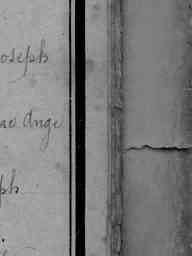 oseph
ao Ange
ph